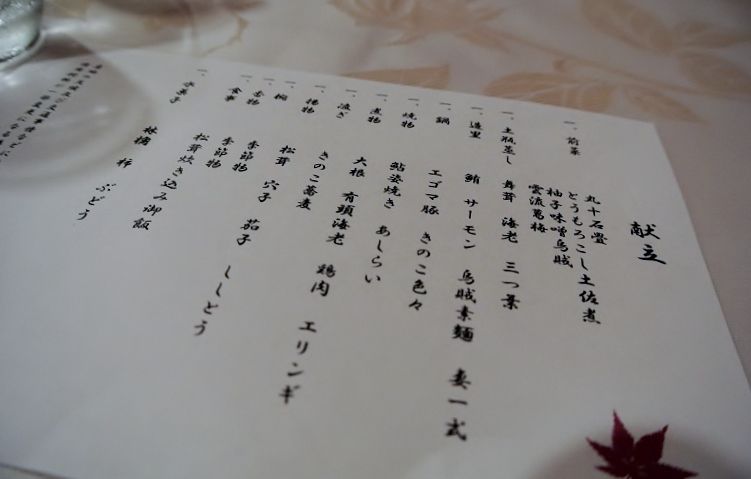 献立
一、前菜
丸十石畳
とうもろこし土佐煮
柚子味噌烏賊
雲流
一、土瓶蒸し 舞茸 海老 三つ葉
一、造里 鮪 サーモン 烏賊素麺 妻一式
一、鍋 エゴマ豚 きのこ色々
一、焼物 鮎姿焼き あしらい
一、煮物 大根 有頭海老 鶏肉 エリンギ
一、凌ぎ きのこ蕎麦
一、揚物 松茸 穴子 茄子 ししとう
一、椀 季節物
一、香物 季節物
一、食事 松茸炊き込み御飯
一、水菓子 林檎 柿 ぶどう